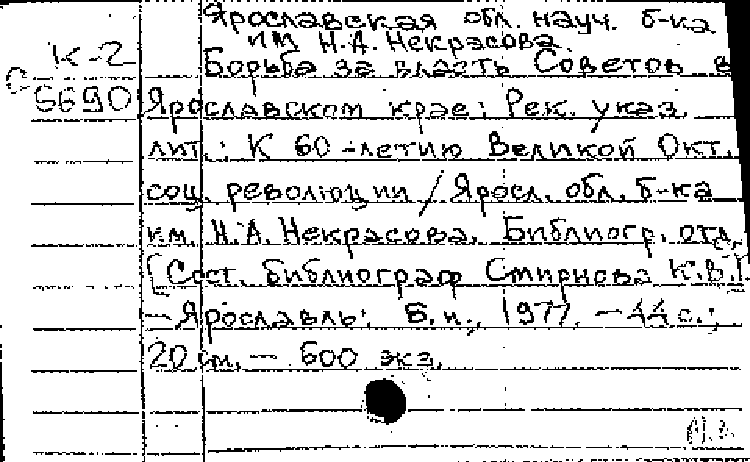 Ярославская обл. науч. б-ка
им Н.А. Некрасова.
К-2
Борьба за власть Советов в
С
6690
Ярославском крае: Рек. указ.
лит.: К 60-летию Великой Окт.
соц. революции / Яросл. обл. б-ка
им. Н.А. Некрасова. Библиогр. отд.
[Сост. библиограф Смирнова К.В.].
— Ярославль: Б.и., 1977. — 44 с.;
20 см. — 600 экз.